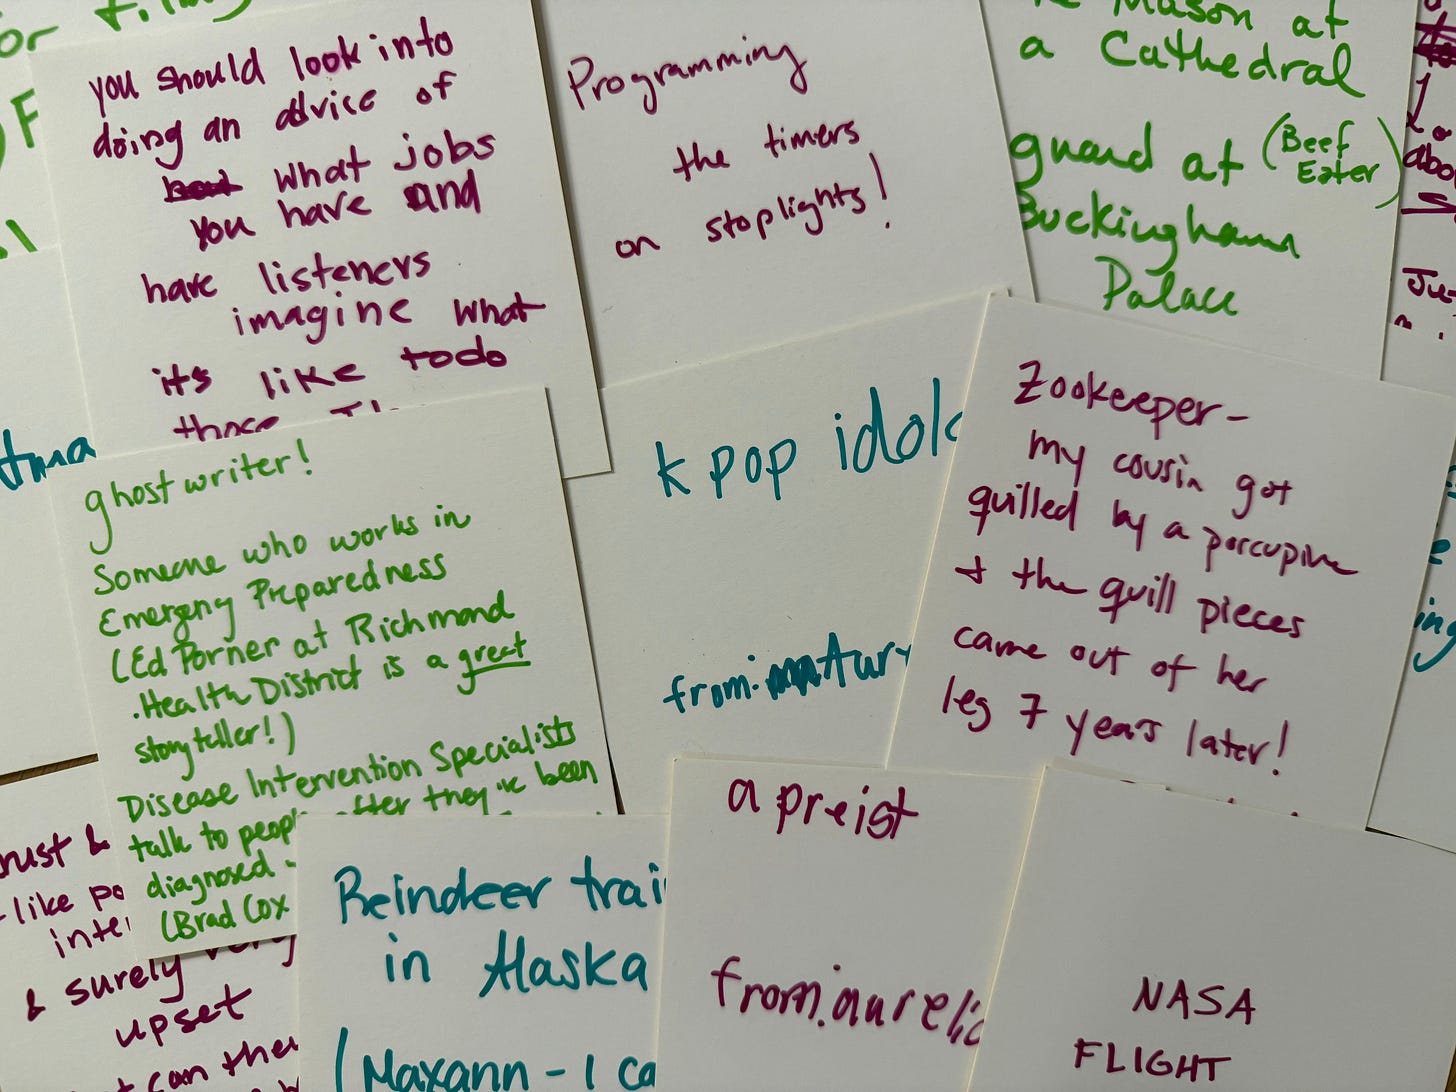 or filmi
you should look into
doing an advice of
what jobs
you have and
have listeners
imagine what
its like todo
those
Programming
the timers
on stoplights!
Mason at
a Cathedral
guard at (Beef
Eater)
Buckingham
Palace
ghostwriter!
Someone who works in
Emergeny Preparedness
(Ed Porner at Richmond
.Health District is a great
storyteller!)
Disease Intervention Specialists
talk to peop after they've been
diagnosed -
(Brad Cox
k pop idols
from:
Zookeeper-
my cousin got
quilled by a porcupine
& the quill pieces
came out of her
leg 7 years later!
rust &
-like po
inte
& surely very
upset
can the
Reindeer trai
in Alaska
(Maxann - I ca
a preist
from:aurelic
NASA
FLIGHT